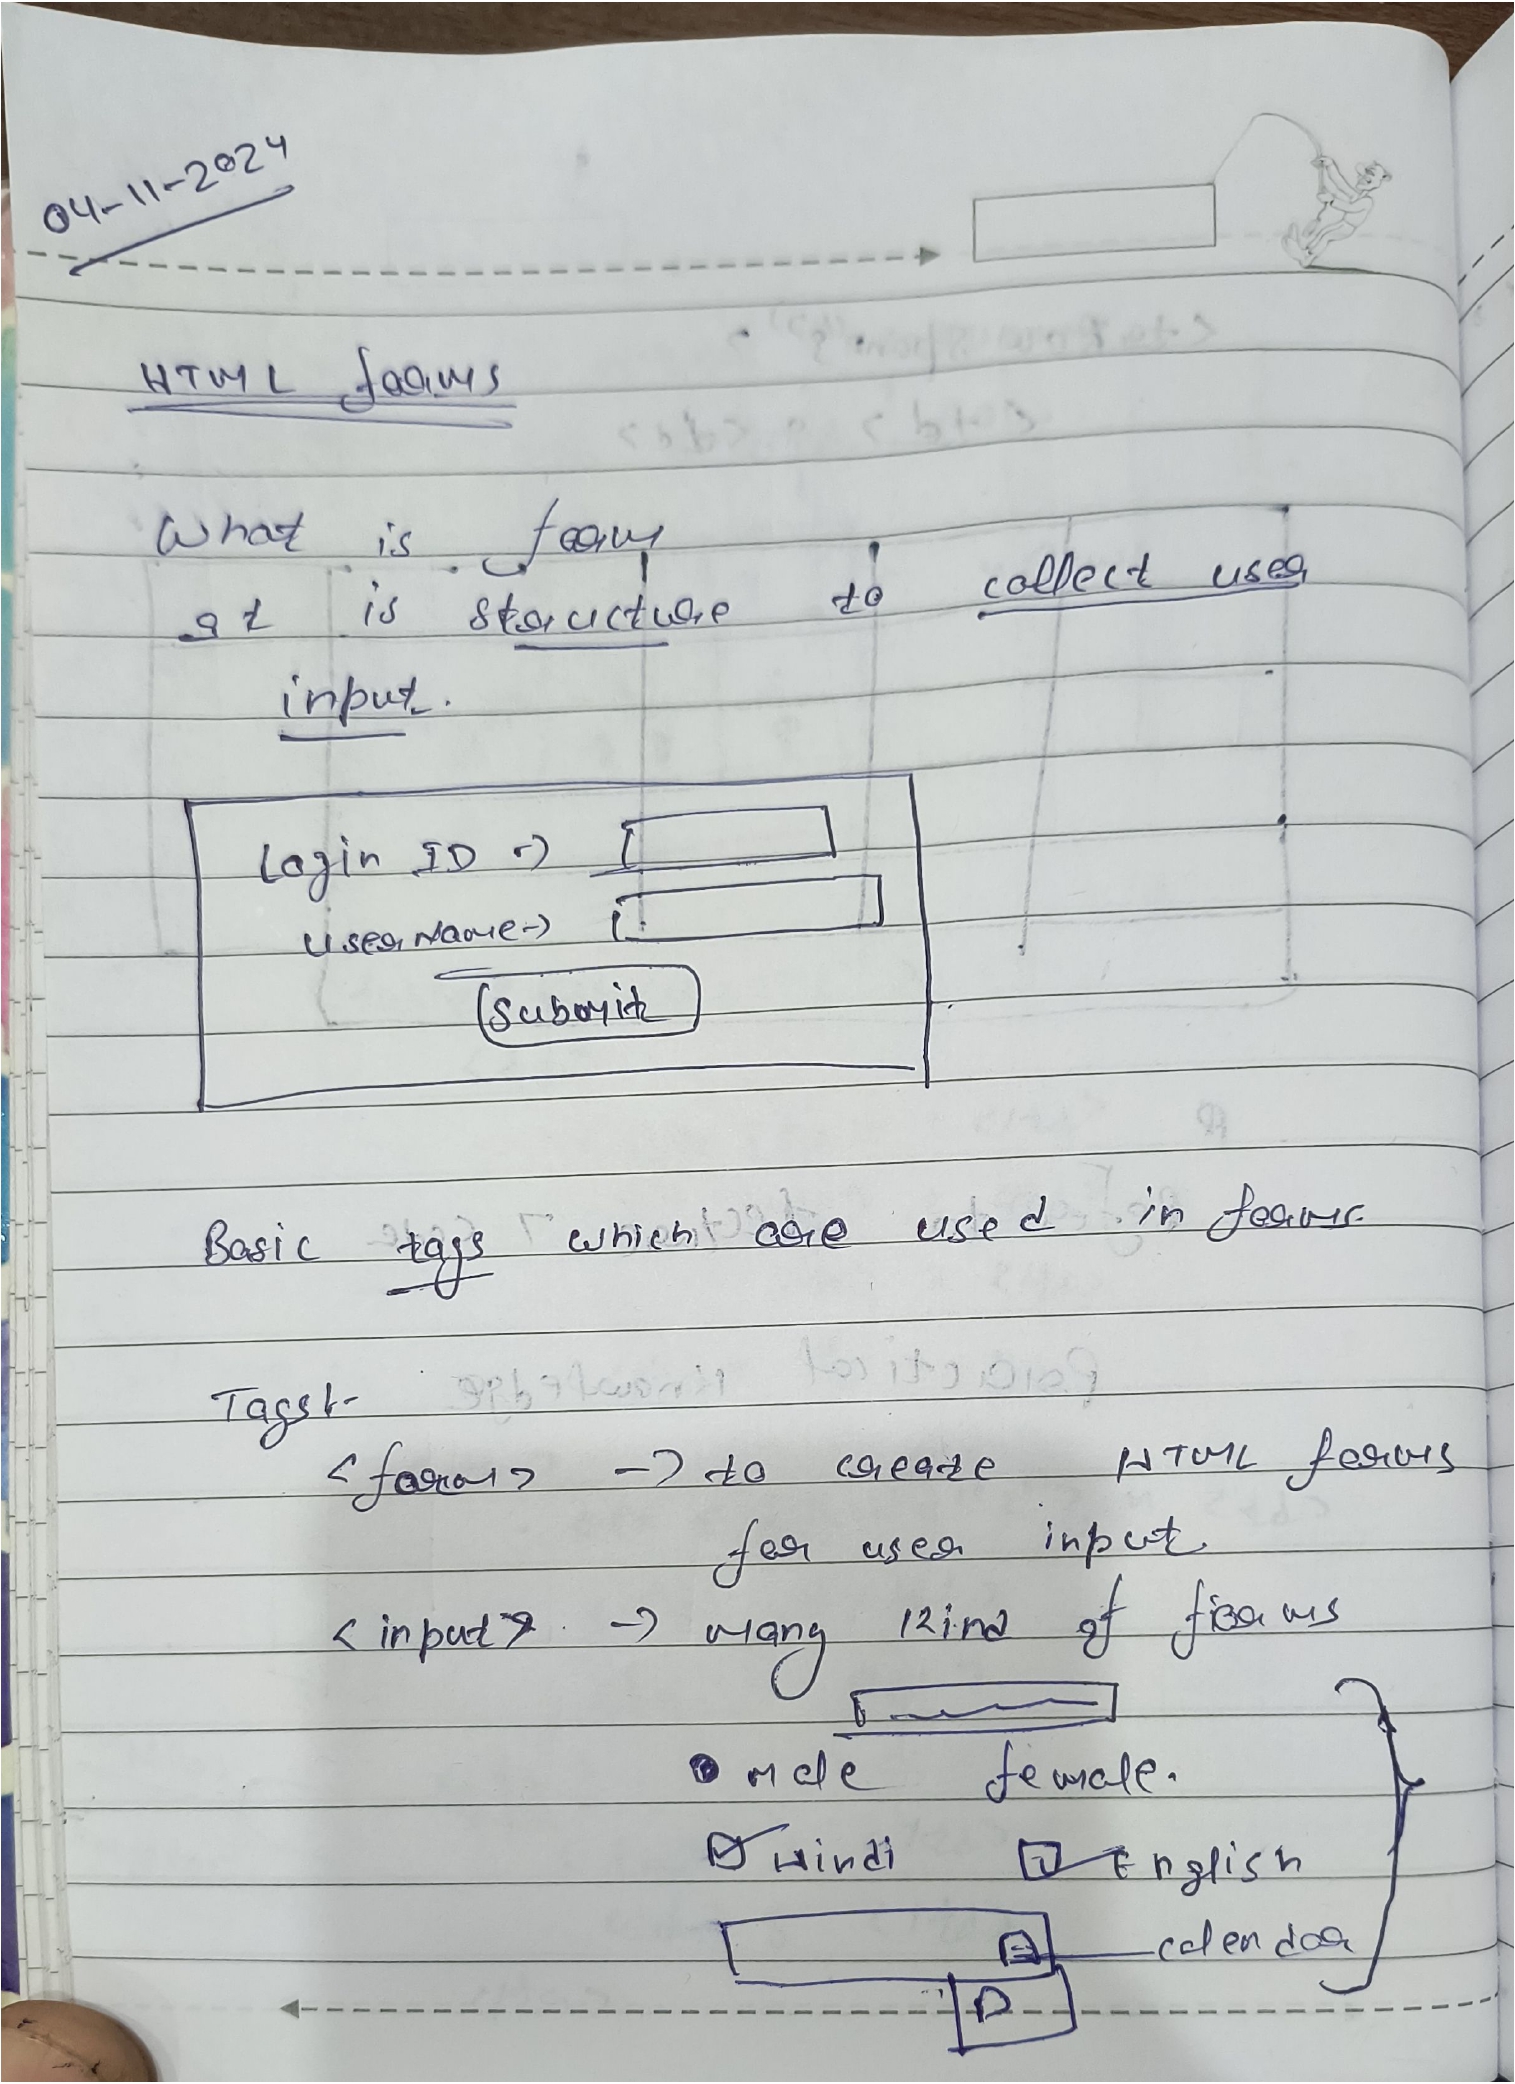 04-11-2024
HTML forms
What is form
It is structure to collect user
input.
Login ID →
UserName →
Submit
Basic tags which are used in forms.
Tags:-
<form> → to create HTML forms
for user input
<input> → many kind of forms
male female.
Hindi English
calendar
D